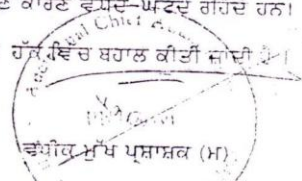 ਕਾਰਣ ਵਧਦੇ-ਘਟਦੇ ਰਹਿੰਦੇ ਹਨ।
ਹੱਕ ਵਿੱਚ ਬਹਾਲ ਕੀਤੀ ਜਾਂਦੀ ਹੈ।
Chief
ਵਧੀਕ ਮੁੱਖ ਪ੍ਰਸ਼ਾਸਕ (ਮ)